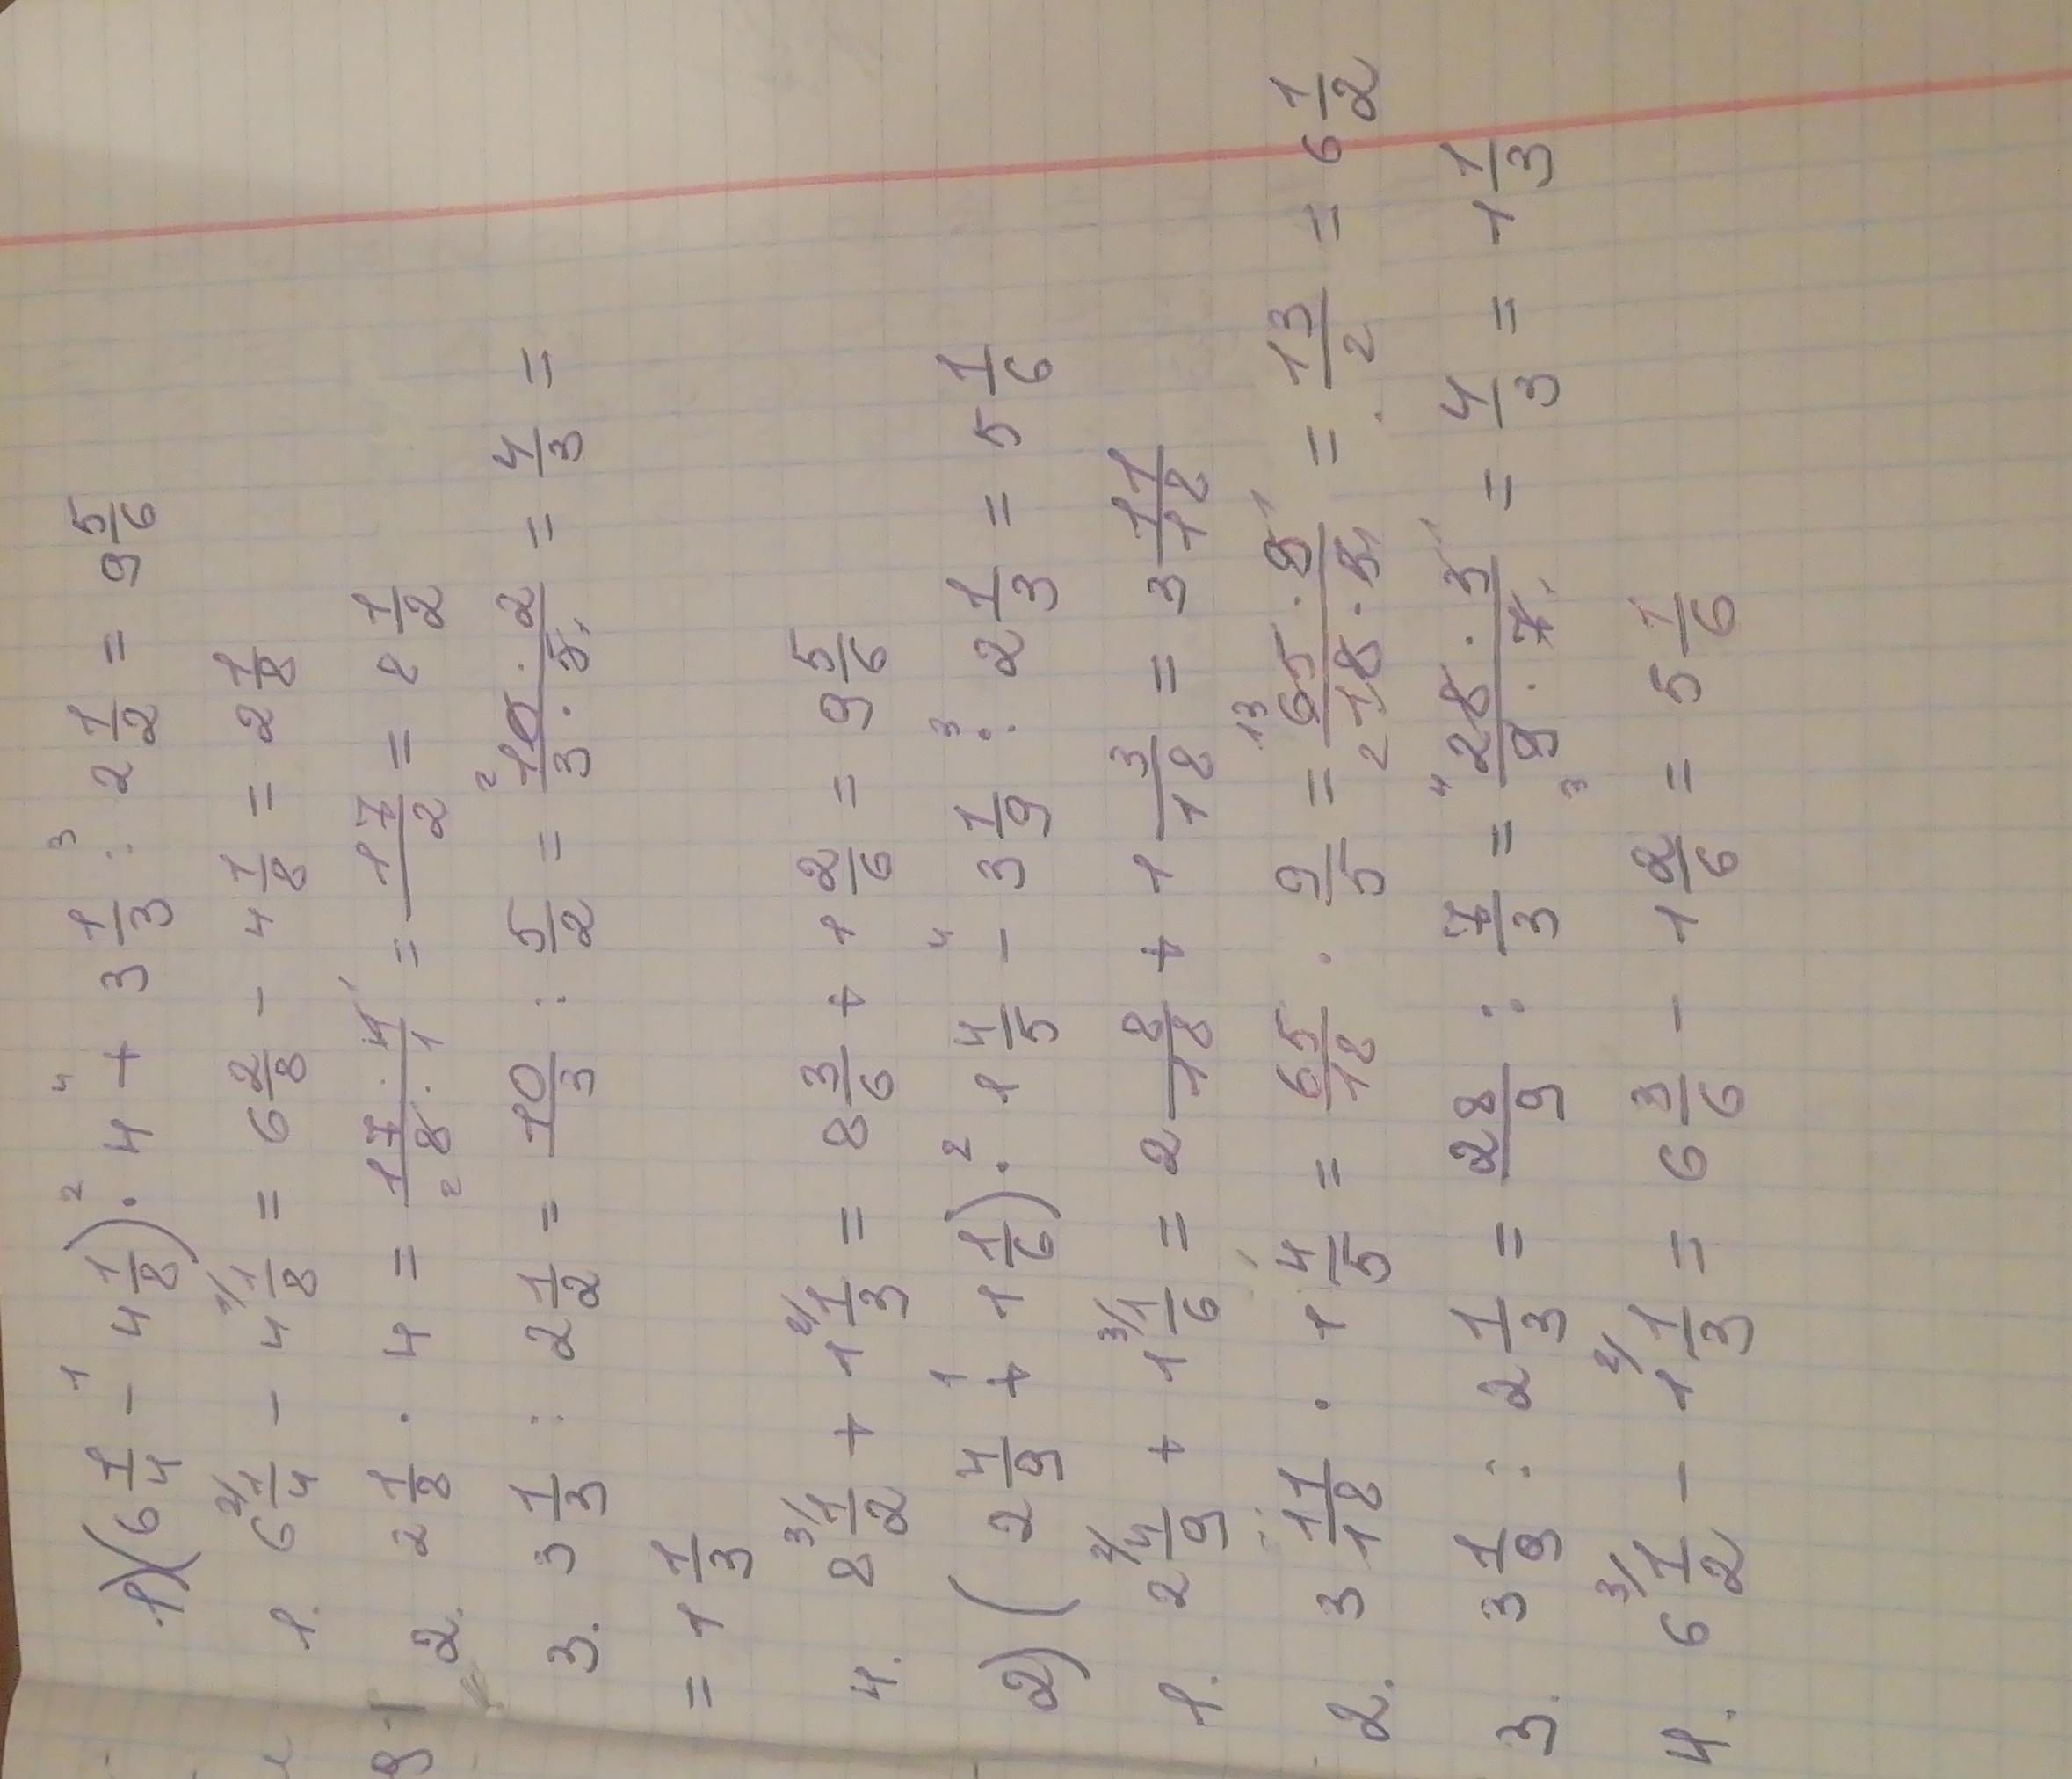 1) (6 1/4 - 4 1/8) · 4 + 3 1/3 : 2 1/2 = 9 5/6
1. 6 1/4 - 4 1/8 = 6 2/8 - 4 1/8 = 2 1/8
2. 2 1/8 · 4 = 17 · 4 / 8 · 1 = 17/2 = 8 1/2
3. 3 1/3 : 2 1/2 = 10/3 : 5/2 = 10 · 2 / 3 · 5 = 4/3 =
= 1 1/3
4. 8 1/2 + 1 1/3 = 8 3/6 + 1 2/6 = 9 5/6
2) (2 4/9 + 1 1/6) · 1 4/5 - 3 1/9 : 2 1/3 = 5 1/6
1. 2 4/9 + 1 1/6 = 2 8/18 + 1 3/18 = 3 11/18
2. 3 11/18 · 1 4/5 = 65/18 · 9/5 = 65 · 9 / 18 · 5 = 13/2 = 6 1/2
3. 3 1/9 : 2 1/3 = 28/9 : 7/3 = 28 · 3 / 9 · 7 = 4/3 = 1 1/3
4. 6 1/2 - 1 1/3 = 6 3/6 - 1 2/6 = 5 1/6